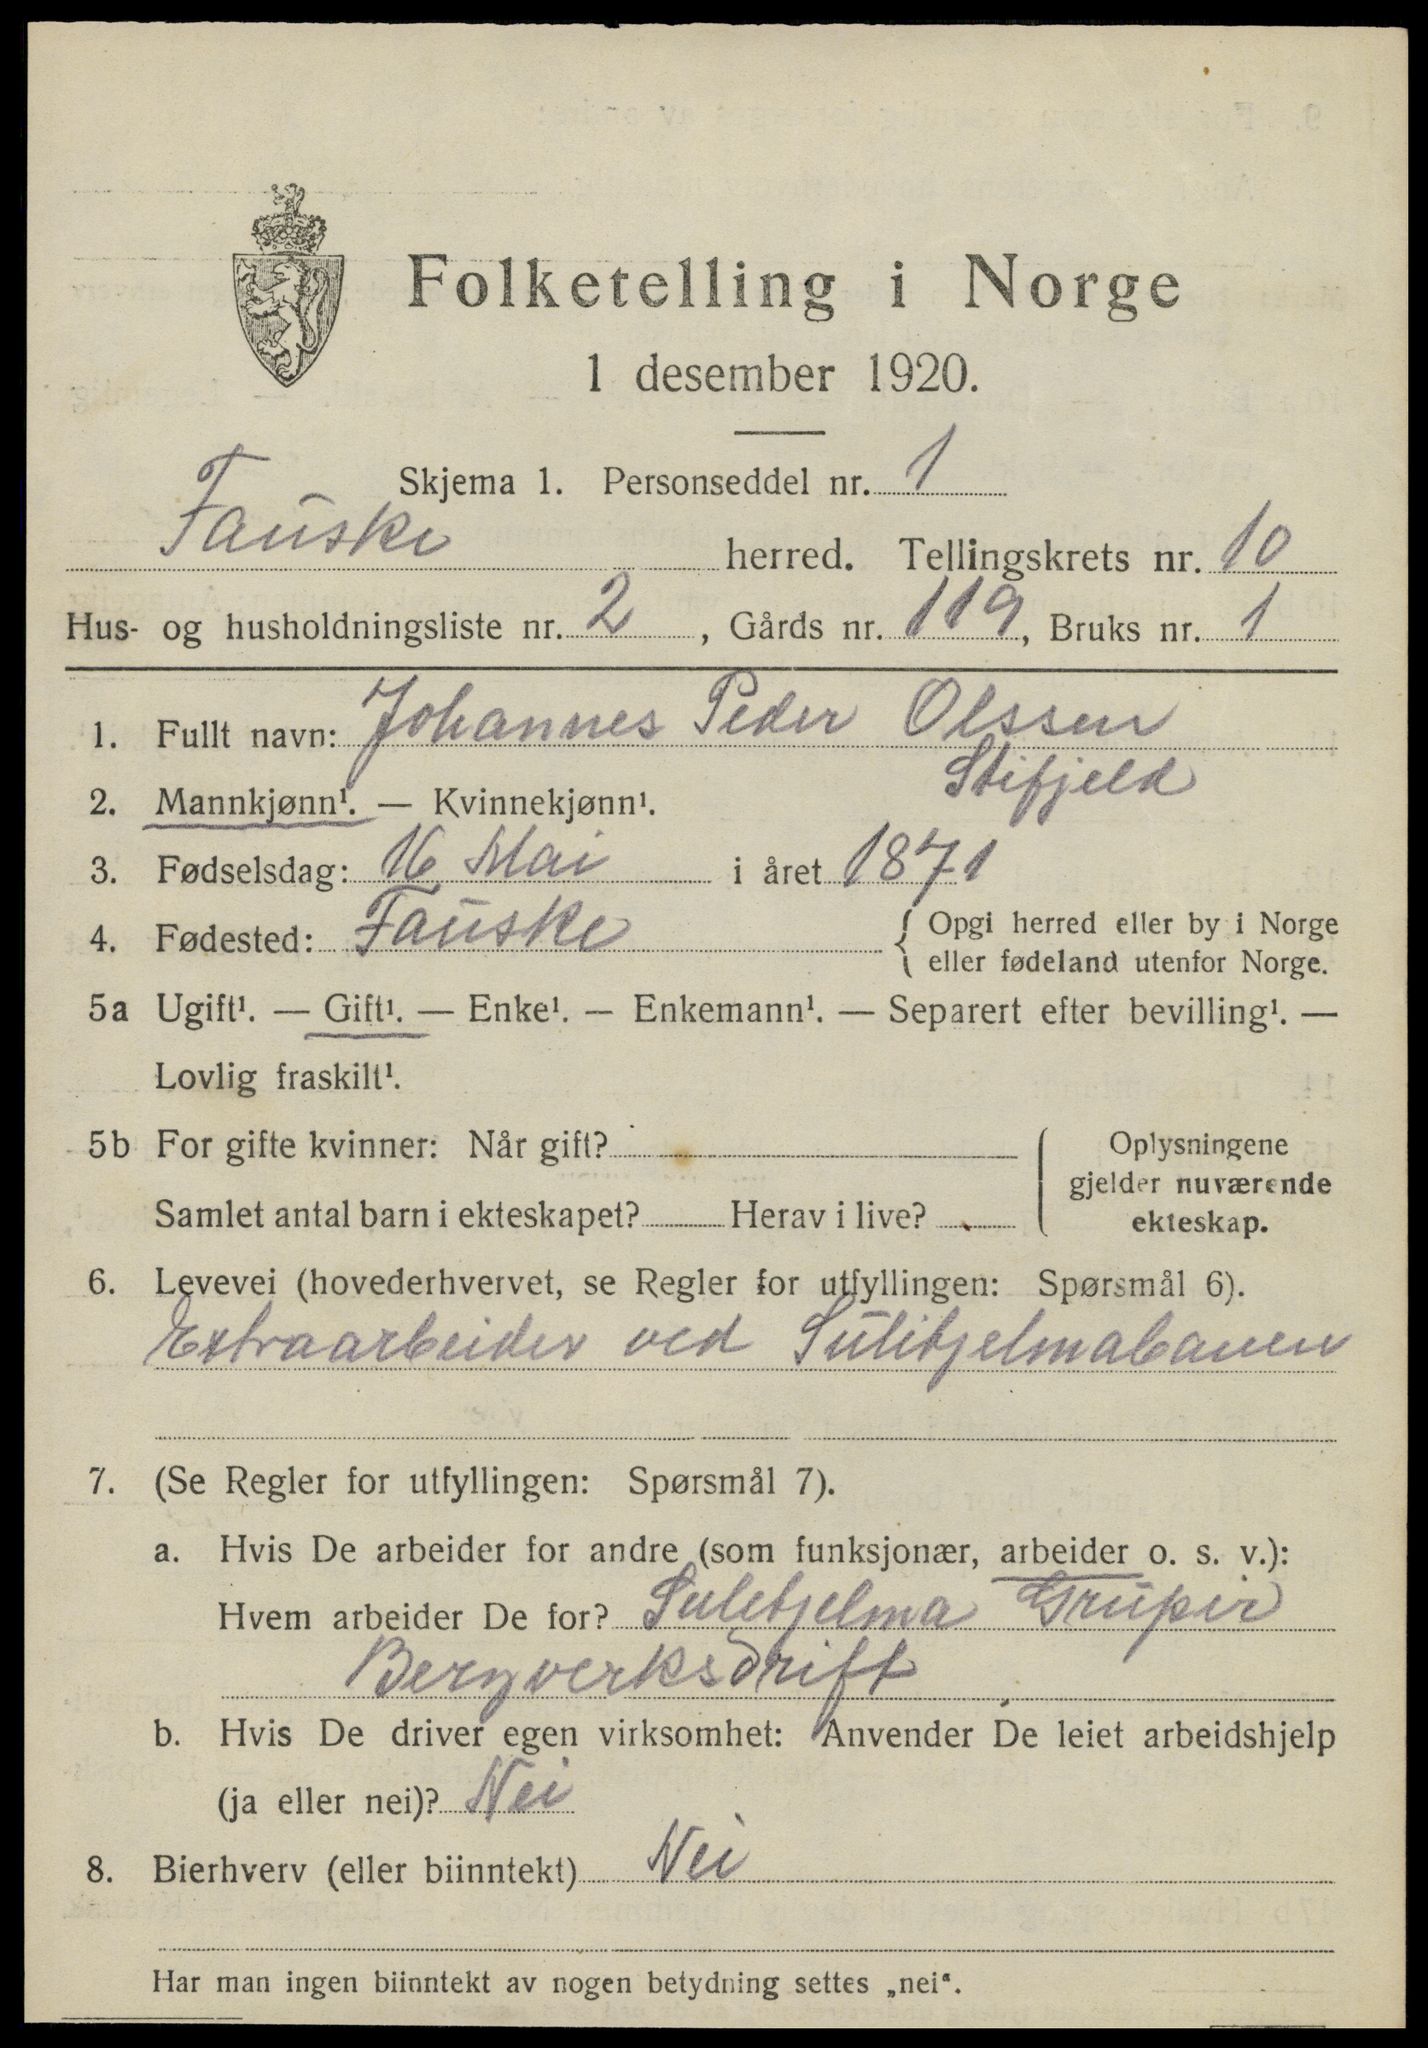 Folketelling i Norge
1 desember 1920.
Skjema 1. Personseddel nr. 1
Fauske herred. Tellingskrets nr. 10
Hus- og husholdningsliste nr. 2, Gårds nr. 119, Bruks nr. 1
1. Fullt navn: Johannes Peder Olssen
Stifjeld
2. Mannkjønn¹. — Kvinnekjønn¹.
3. Fødselsdag: 16 Mai i året 1871
4. Fødested: Fauske { Opgi herred eller by i Norge
eller fødeland utenfor Norge.
5a Ugift¹. — Gift¹. — Enke¹. — Enkemann¹. — Separert efter bevilling¹. —
Lovlig fraskilt¹.
5b For gifte kvinner: Når gift? Oplysningene
gjelder nuværende
Samlet antal barn i ekteskapet? Herav i live? ekteskap.
6. Levevei (hovederhvervet, se Regler for utfyllingen: Spørsmål 6).
Extraarbeider ved Sulitjelmabanen
7. (Se Regler for utfyllingen: Spørsmål 7).
a. Hvis De arbeider for andre (som funksjonær, arbeider o. s. v.):
Hvem arbeider De for? Sulitjelma
Bergverksdrift
b. Hvis De driver egen virksomhet: Anvender De leiet arbeidshjelp
(ja eller nei)? Nei
8. Bierhverv (eller biinntekt) Nei
Har man ingen biinntekt av nogen betydning settes „nei“.